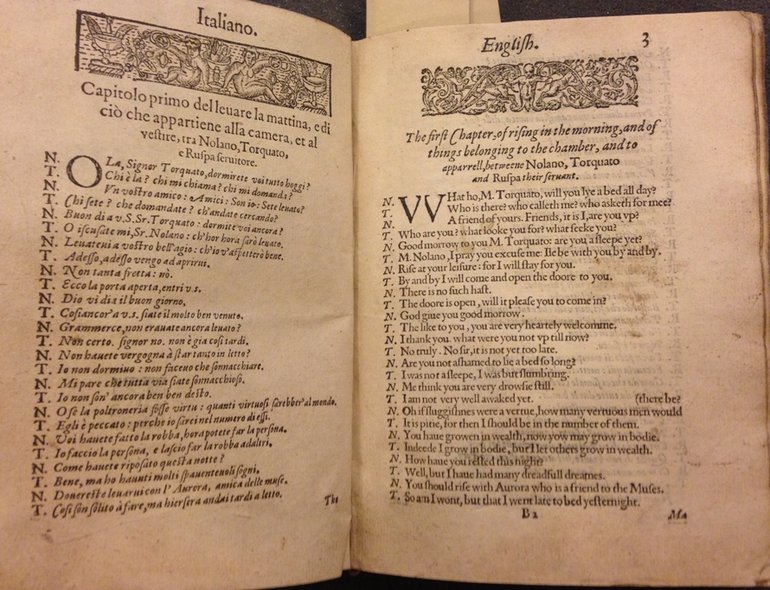 Italiano.
Capitolo primo del leuare la mattina, e di
ciò che appartiene alla camera, et al
vestire, tra Nolano, Torquato,
e Ruspa seruitore.
N. OLa, Signor Torquato, dormirete voi tutto hoggi?
T. Chi è la? chi mi chiama? chi mi domanda?
N. Vn vostro amico: Amici: Son io: Sete leuato?
T. Chi sete? che domandate? ch'andate cercando?
N. Buon di a v.S.Sr.Torquato: dormite voi ancora?
T. O iscusate mi, Sr. Nolano: ch'hor hora sarò leuato.
N. Leuateui a vostro bell'agio: ch'io v'aspetterò bene.
T. Adesso, adesso vengo ad aprirui.
N. Non tanta fretta: nò.
T. Ecco la porta aperta, entri v.s.
N. Dio vi dia il buon giorno.
T. Cosi ancor' a v.s. siate il molto ben venuto.
N. Grammerce, non erauate ancora leuato?
T. Non certo. signor no. non è gia cosi tardi.
N. Non hauete vergogna à star tanto in letto?
T. Io non dormiuo: non faceuo che sonnacchiare.
N. Mi pare che tutta via siate sonnacchioso.
T. Io non son' ancora ben ben desto.
N. O se la poltroneria fosse virtu: quanti virtuosi sarebber' al mondo.
T. Egli è peccato: perche io sarei nel numero di essi.
N. Voi hauete fatto la robba, hora potete far la persona.
T. Io faccio la persona, e lascio far la robba ad altri.
N. Come hauete riposato questa notte?
T. Bene, ma ho hauuti molti spauenteuoli sogni.
N. Douereste leuarui con l'Aurora, amica delle muse.
T. Cosi son solito à fare, ma hiersera andai tardi a letto.
The
English. 3
The first Chapter, of rising in the morning, and of
things belonging to the chamber, and to
apparrell, betweene Nolano, Torquato
and Ruspa their seruant.
N. WHat ho, M. Torquato, will you lye a bed all day?
T. Who is there? who calleth me? who asketh for mee?
N. A friend of yours. Friends, it is I, are you vp?
T. Who are you? what looke you for? what seeke you?
N. Good morrow to you M. Torquato: are you a sleepe yet?
T. M. Nolano, I pray you excuse me: Ile be with you by and by.
N. Rise at your leisure: for I will stay for you.
T. By and by I will come and open the doore to you.
N. There is no such hast.
T. The doore is open, will it please you to come in?
N. God giue you good morrow.
T. The like to you, you are very heartely welcomme.
N. I thank you. what were you not vp till now?
T. No truly. No sir, it is not yet too late.
N. Are you not ashamed to lie a bed so long?
T. I was not a sleepe, I was but slumbring.
N. Me think you are very drowsie still.
T. I am not very well awaked yet. (there be?
N. Oh if sluggishnes were a vertue, how many vertuous men would
T. It is pitie, for then I should be in the number of them.
N. You haue growen in wealth, now yow may grow in bodie.
T. Indeede I grow in bodie, but I let others grow in wealth.
N. How haue you rested this night?
T. Well, but I haue had many dreadfull dreames.
N. You should rise with Aurora who is a friend to the Muses.
T. So am I wont, but that I went late to bed yesternight.
B 2 Ma